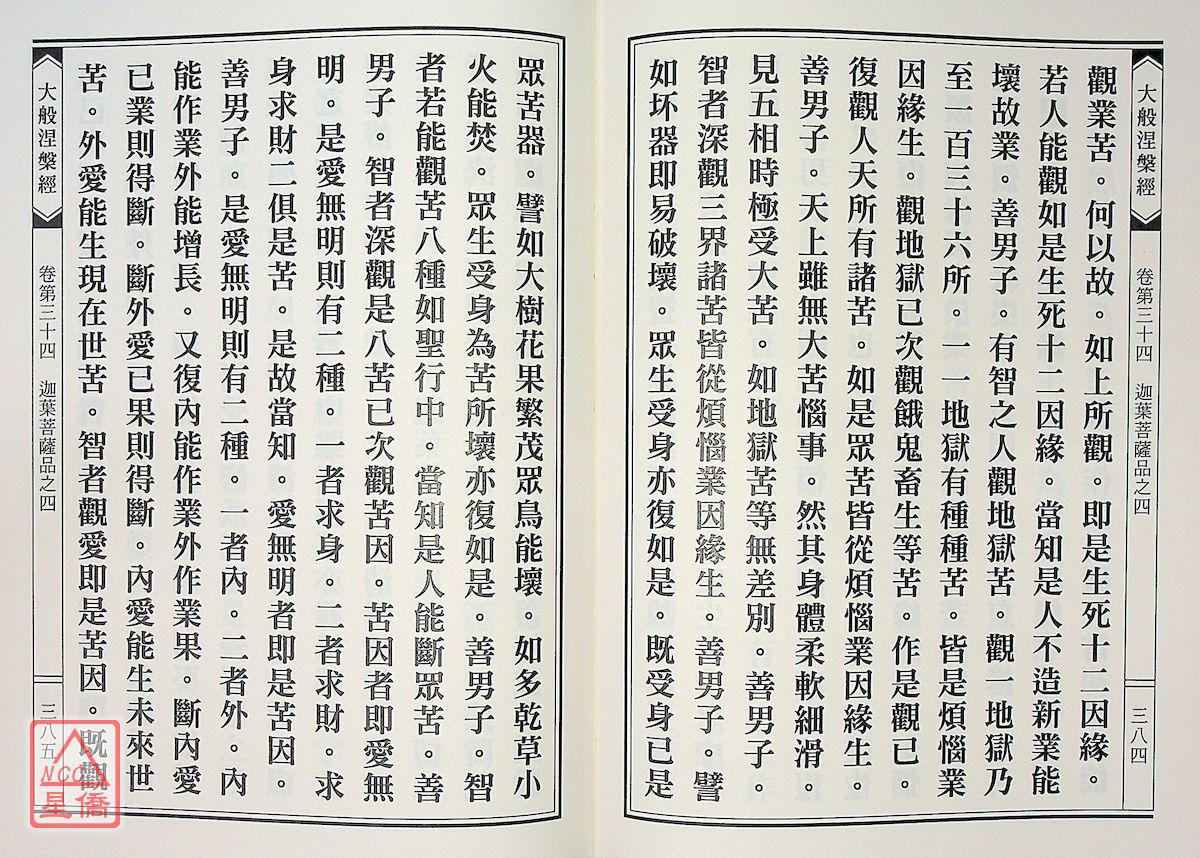 大般涅槃經
卷第三十四 迦葉菩薩品之四
三八四
觀業苦。何以故。如上所觀。即是生死十二因緣。
若人能觀如是生死十二因緣。當知是人不造新業能
壞故業。善男子。有智之人觀地獄苦。觀一地獄乃
至一百三十六所。一一地獄有種種苦。皆是煩惱業
因緣生。觀地獄已次觀餓鬼畜生等苦。作是觀已。
復觀人天所有諸苦。如是眾苦皆從煩惱業因緣生。
善男子。天上雖無大苦惱事。然其身體柔軟細滑。
見五相時極受大苦。如地獄苦等無差別。善男子。
智者深觀三界諸苦皆從煩惱業因緣生。善男子。譬
如坏器即易破壞。眾生受身亦復如是。既受身已是
眾苦器。譬如大樹花果繁茂眾鳥能壞。如多乾草小
火能焚。眾生受身為苦所壞亦復如是。善男子。智
者若能觀苦八種如聖行中。當知是人能斷眾苦。善
男子。智者深觀是八苦已次觀苦因。苦因者即愛無
明。是愛無明則有二種。一者求身。二者求財。求
身求財二俱是苦。是故當知。愛無明者即是苦因。
善男子。是愛無明則有二種。一者內。二者外。內
能作業外能增長。又復內能作業外作業果。斷內愛
已業則得斷。斷外愛已果則得斷。內愛能生未來世
苦。外愛能生現在世苦。智者觀愛即是苦因。既觀
大般涅槃經
卷第三十四 迦葉菩薩品之四
三八五
NCC
星僑